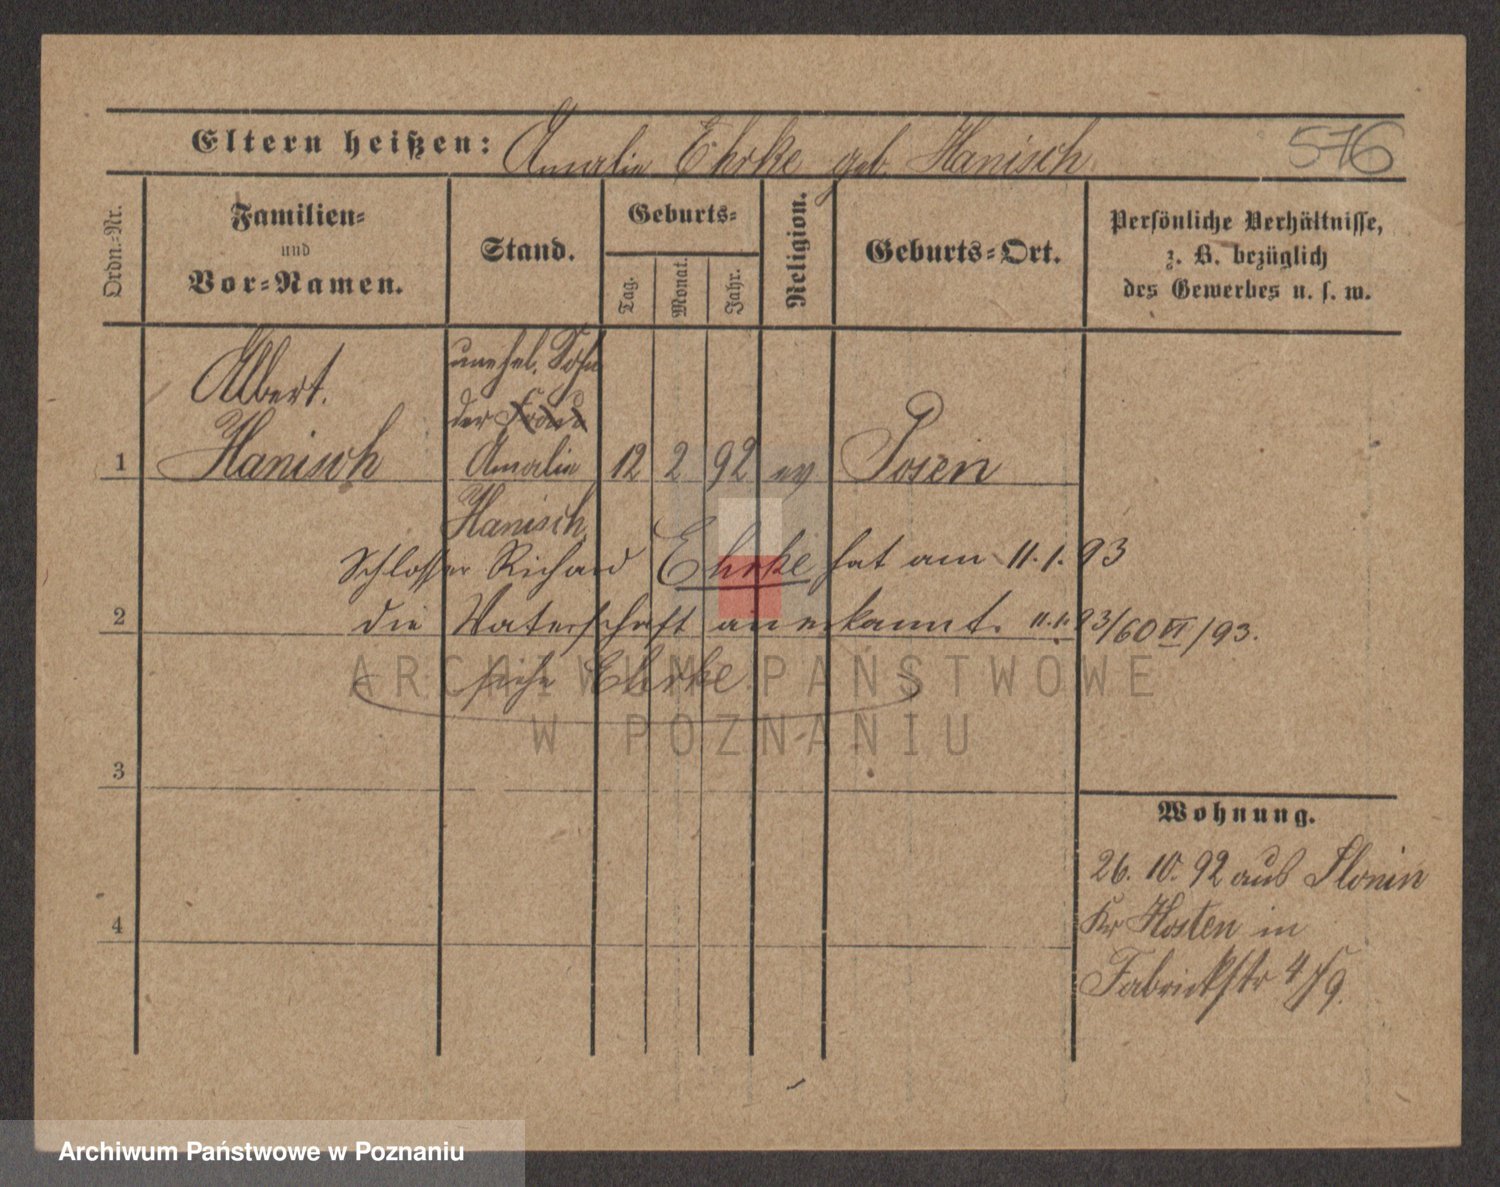 Eltern heißen: Amalie Ehrke geb. Hanisch 576
Ordn.-Nr.
Familien-
und
Vor-Namen.
Stand.
Geburts-
Tag.
Monat.
Jahr.
Religion.
Geburts-Ort.
Persönliche Verhältnisse,
z. B. bezüglich
des Gewerbes u. s. w.
1
Albert.
Hanisch
unehel. Sohn
der Frau
Amalie
Hanisch
12 2 92 ev Posen
Schlosser Richard Ehrke hat am 11.1.93
2 die Vaterschaft anerkannt. 11.1.93/60 VI/93.
siehe Ehrke
3
4
Wohnung.
26.10.92 aus Slonin
Kr Kosten in
Fabrickstr 4
ARCHIWUM PAŃSTWOWE
W POZNANIU
Archiwum Państwowe w Poznaniu